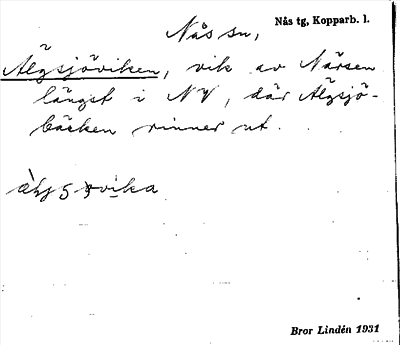 Nås sn,
Nås tg, Kopparb. l.
Älgsjöviken, vik av Närsen
längst i NV, där Älgsjö-
bäcken rinner ut.
Bror Lindén 1931